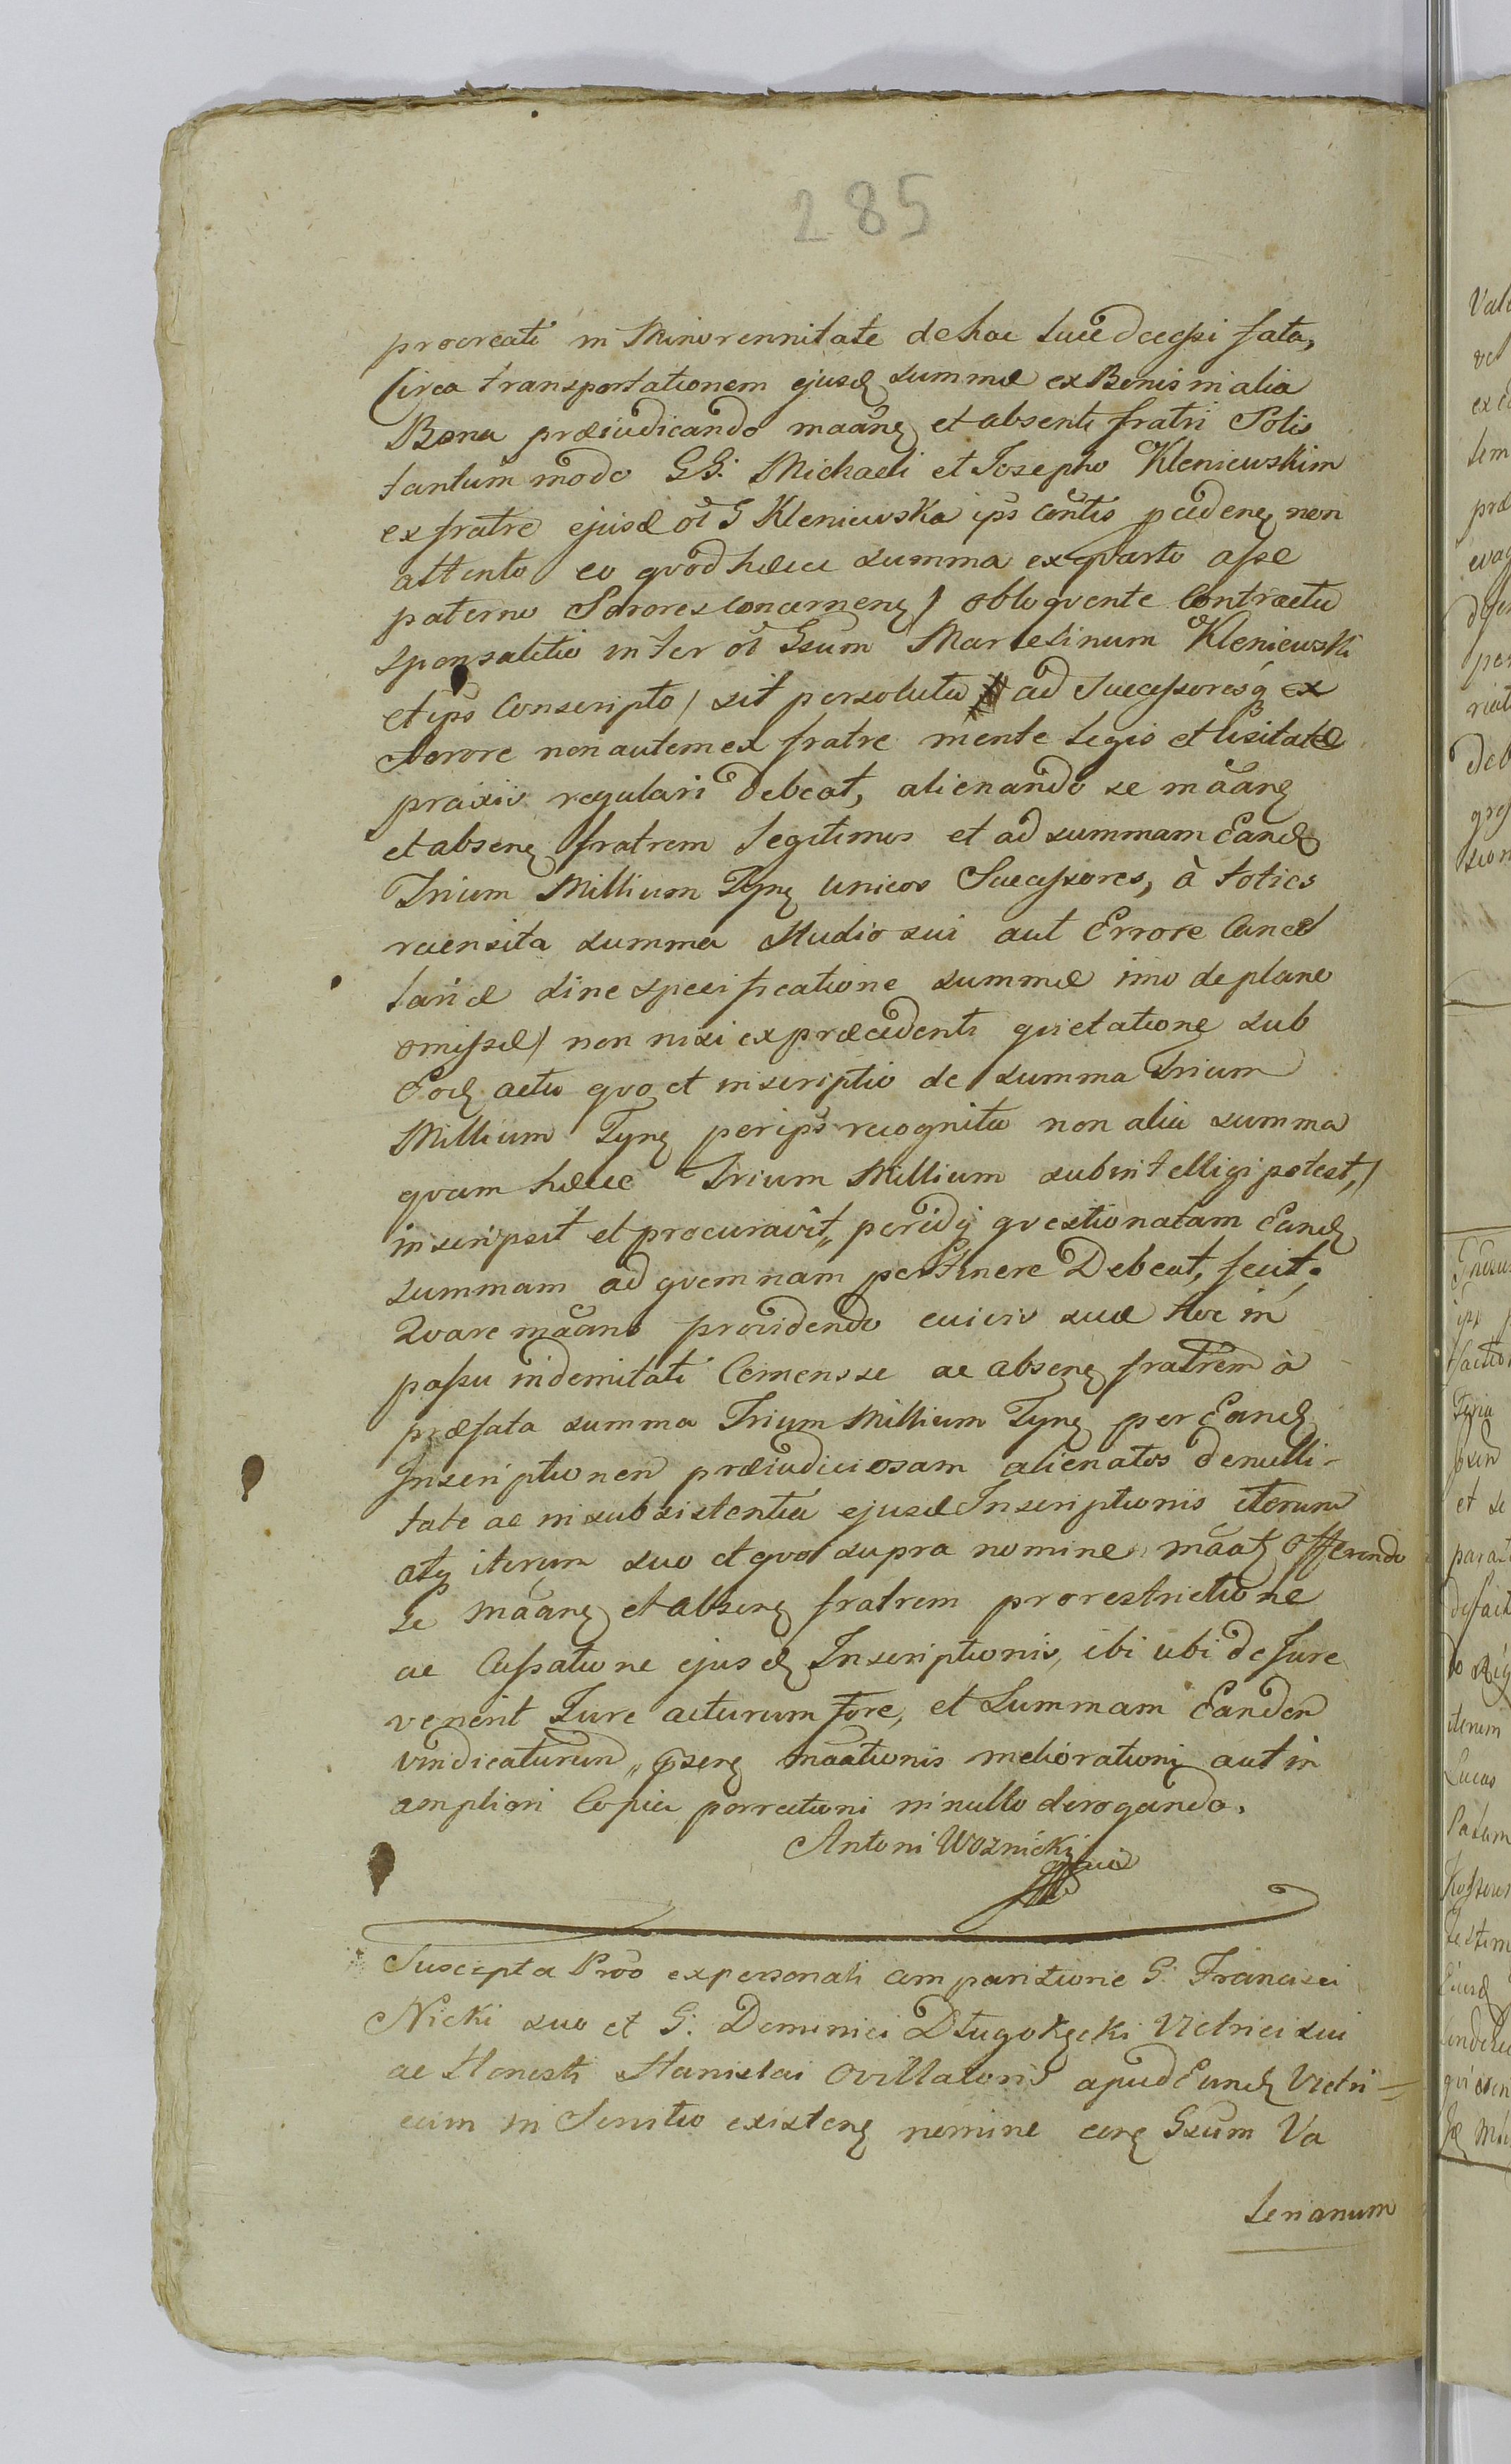 285
procreati in Minorennitate de hac luce decessi fata,
Circa transportationem ejusd summæ ex Bonis in alia
Bona præiudicando maãnę et absenti fratri Solis
tantum modo GG. Michaeli et Josepho Kleniewskim
ex fratre ejusd ol G Kleniewska ips contis pcedenę non
attento eo qvod hæcce summa ex qvarto asse
paterno Sorores concernenę / obloqvente Contractu
sponsalitio inter ol Gsum Marcelinum Kleniewski
et ips Conscripto / sit persoluta ad Successoresq ex
Sorore non autem ex fratre mente Legis et Usitatæ
praxis regulari Debeat, alienando se mãanę
et absenę fratrem legitimos et ad summam Eandę
Trium Millium Tynę unicos Successores, à toties
recensita summa Studio sui aut Errore Cancel
lariæ sine specificatione summæ imo de plano
omissæ / non nisi ex præcedenti qvietatione sub
Eodę actu qvo et inscriptio de summa Trium
Millium Tynę per ips recognita non alia summa
qvam hæcce Trium Millium subintelligi potest, /
inscripsit et procuravit„ per idq qvestionatam Eandę
summam ad qvemnam pertinere Debeat, fecit.
Qvare mãans providendo cuivis suæ hoc in
passu indemnitati Cernens se ac absenę fratrem à
præfata summa Trium Millium Tynę per Eandę
Inscriptionem præiudiciosam alienatos de nulli-
tate ac in subsistentia ejusd Inscriptionis iterum
atq iterum suo et qvo supra nomine mãatę Offerendo
se mãanę et absenę fratrem pro restrictione
ac Cassatione ejusdę Inscriptionis, ibi ubi de Jure
venerit Jure acturum fore, et Summam Eandem
vindicaturum„ pserę mãationis meliorationi aut in
ampliori Copia porrectioni in nullo derogando.
Antoni Woznicki
Suscepta Pröo ex personali comparitione G. Francisci
Nicki suo et G. Dominici Długołęcki Vietrici sui
ac Honesti Stanislai Ovillatoris apud Eundę Vietri-
cum in Servitio existenę nomine corę Gsum Va
lerianum